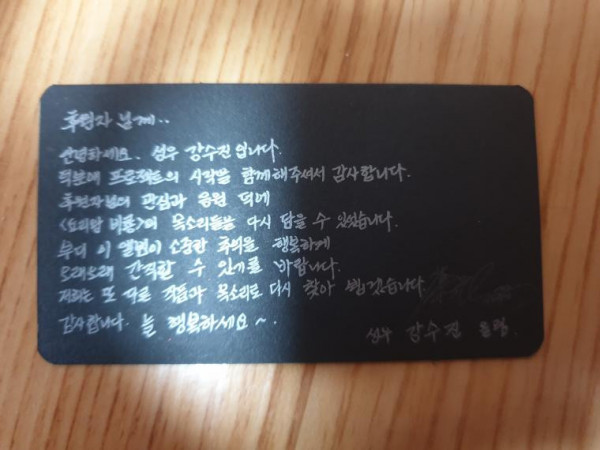 후원자님께..
안녕하세요. 성우 강수진입니다.
덕분에 프로젝트의 시작을 함께해주셔서 감사합니다.
후원자님의 관심과 응원 덕에
의 목소리들을 다시 담을 수 있었습니다.
부디 이 앨범이 소중한 추억을 행복하게
오래오래 간직할 수 있기를 바랍니다.
저희는 또 다른 작품과 목소리로 다시 찾아 뵙겠습니다
감사합니다. 늘 행복하세요~.
성우 강수진 올림.